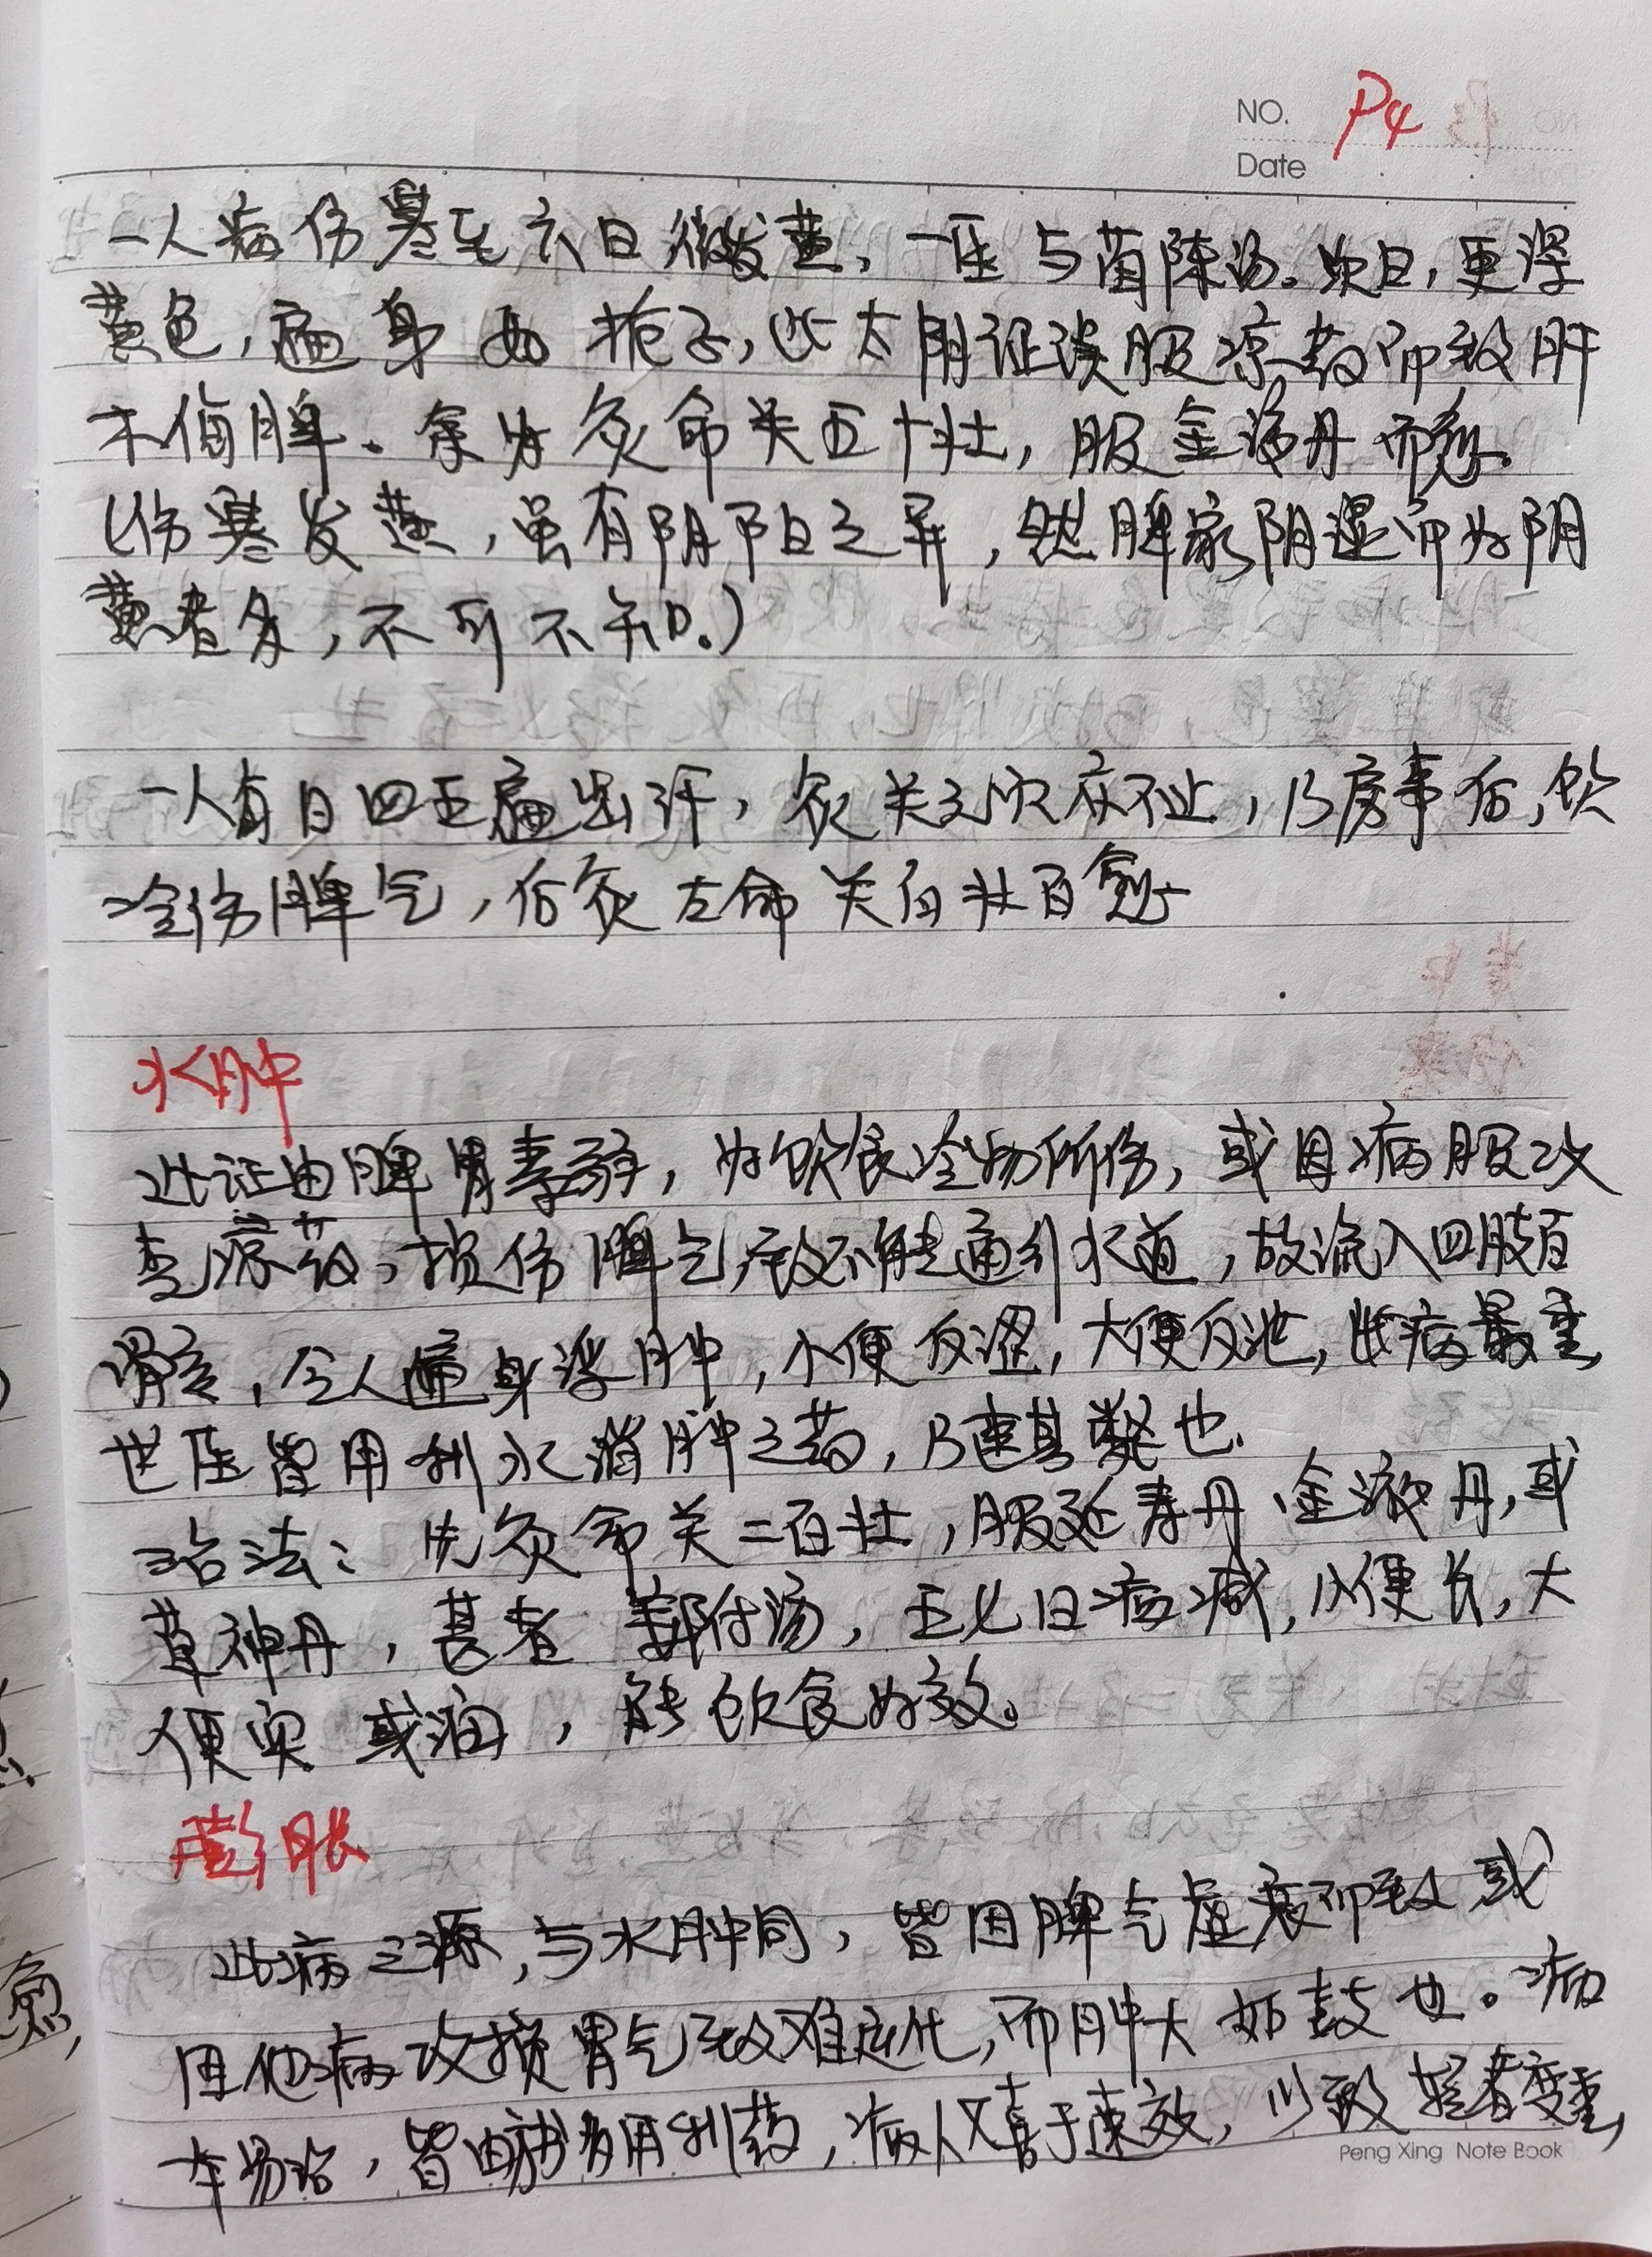 NO. P4
Date
一人病伤寒至六日微发黄，一医与茵陈汤。次日，更深
黄色，遍身如栀子，此太阴证误服凉药而致肝
木侮脾。余为灸命关五十壮，服金液丹而愈。
（伤寒发黄，虽有阴阳之异，然脾家阴湿而为阴
黄者多，不可不知。）
一人每日四五遍出汗，灸关元穴亦不止，乃房事后，饮
冷伤脾气，后灸左命关百壮百愈
水肿
此证由脾胃素弱，为饮食冷物所伤，或因病服攻
克凉药，损伤脾气，致不能通行水道，故流入四肢百
骸，令人遍身浮肿，小便反涩，大便反泄，此病最重，
世医皆用利水消肿之药，乃速其毙也。
治法：先灸命关二百壮，服延寿丹、金液丹，或
草神丹，甚者姜附汤，五七日病减，小便长，大
便实或润，能饮食为效。
膨胀
此病之源，与水肿同，皆因脾气虚衰而致或
因他病攻损胃气致难运化，而肿大如鼓也。病
本易治，皆由多用利药，病人又喜于速效，以致轻者变重，
Peng Xing Note Book
愈，